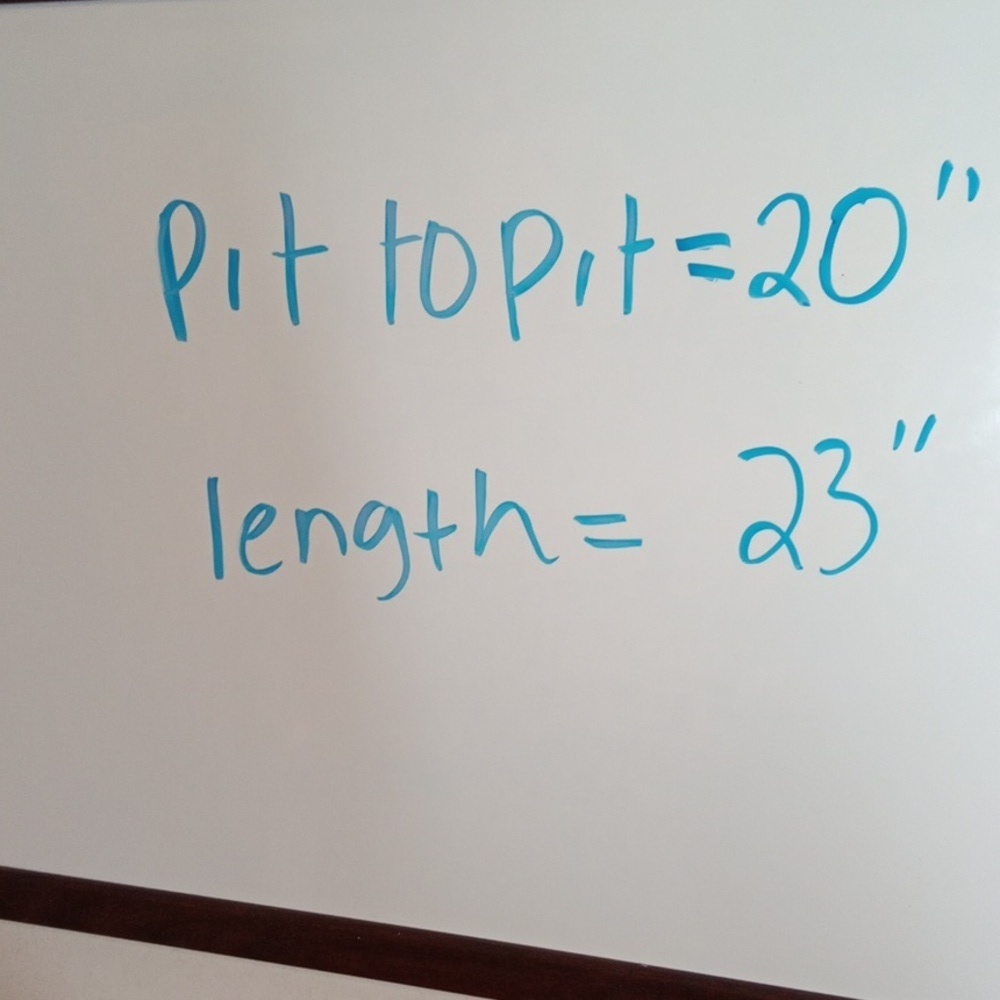 pit to pit = 20"
length = 23"